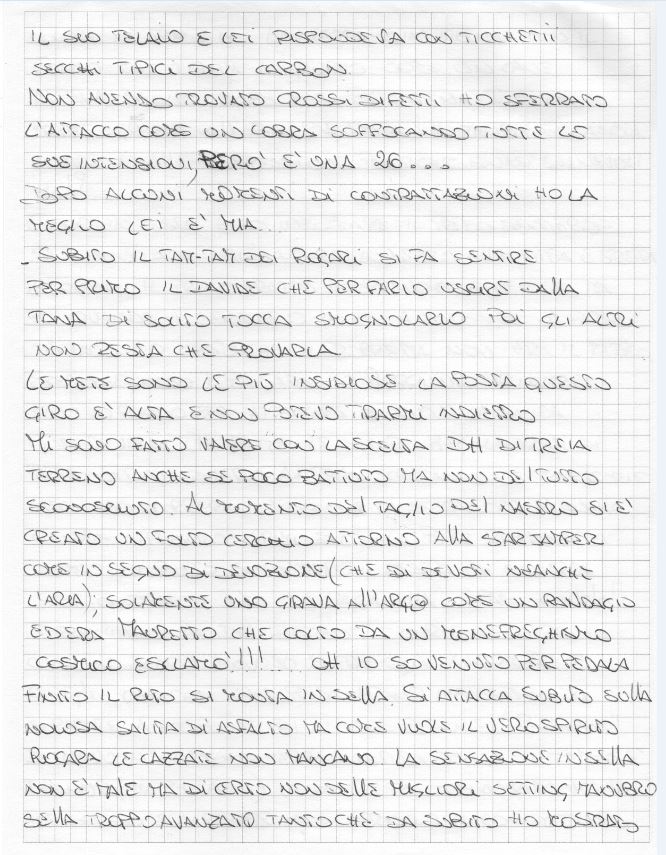 IL SUO TELAIO E LEI RISPONDEVA CON TICCHETII
SECCHI TIPICI DEL CARBON
NON AVENDO TROVATO GROSSI DIFETTI HO SFERRATO
L'ATTACCO COME UN COBRA SOFFOCANDO TUTTE LE
SUE INTENSIONI, PERO' E' UNA 26...
DOPO ALCUNI MOMENTI DI CONTRATTAZIONI HO LA
MEGLIO LEI E' MIA...
- SUBITO IL TAM-TAM DEI ROGARI SI FA SENTIRE
PER PRIMO IL DAVIDE CHE PER FARLO USCIRE DALLA
TANA DI SOLITO TOCCA SMOGNOLARLO POI GLI ALTRI
NON RESTA CHE PROVARLA
LE METE SONO LE PIÙ INSIDIOSE LA POSTA QUESTO
GIRO E' ALTA E NON POTEVO TIRARMI INDIETRO
MI SONO FATTO VALERE CON LA SCELTA DH DI TREIA
TERRENO ANCHE SE POCO BATTUTO MA NON DEL TUTTO
SCONOSCIUTO. AL MOMENTO DEL TAGLIO DEL NASTRO SI E'
CREATO UN FOLTO CERCHIO ATTORNO ALLA STARJAMPER
COME IN SEGNO DI DEVOZIONE (CHE DI DEVOTI NEANCHE
L'ARIA); SOLAMENTE UNO GIRAVA ALL'ARGO COME UN RANDAGIO
ED ERA MAURETTO CHE COLTO DA UN MENEFREGHISMO
COSMICO ESCLAMO' !!! ... OH IO SO VENUTO PER PEDALA
FINITO IL RITO SI MONTA IN SELLA. SI ATTACCA SUBITO SULLA
NOIOSA SALITA DI ASFALTO MA COME VUOLE IL VERO SPIRITO
ROGARA LE CAZZATE NON MANCANO. LA SENSAZIONE IN SELLA
NON E' MALE MA DI CERTO NON DELLE MIGLIORI SETTING MANUBRO
SELLA TROPPO AVANZATO TANTO CHE DA SUBITO HO MOSTRATO